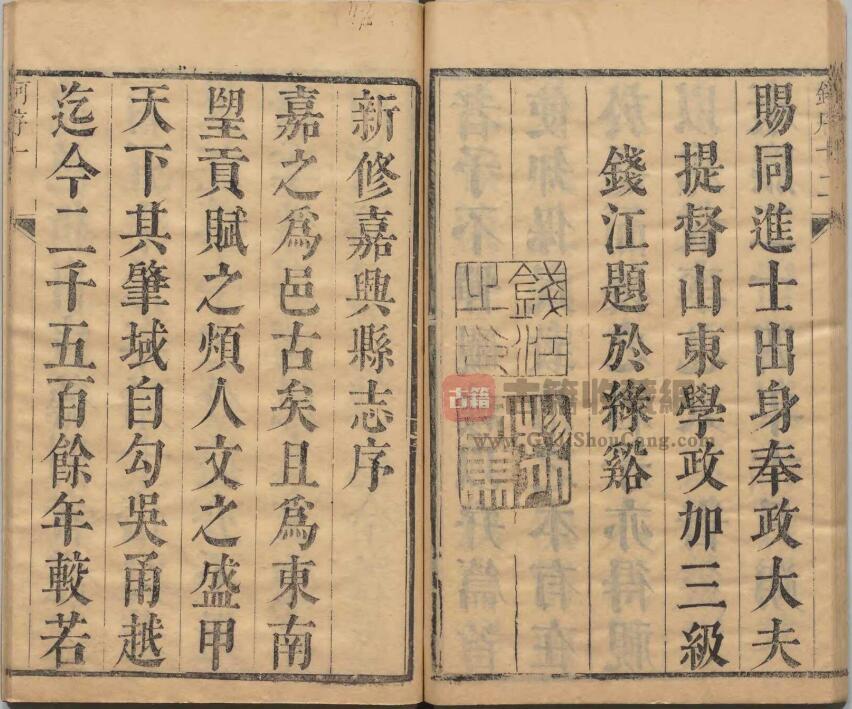 賜同進士出身奉政大夫
提督山東學政加三級
錢江題於綠谿
新修嘉興縣志序
嘉之爲邑古矣且爲東南
望貢賦之煩人文之盛甲
天下其肇域自勾吳甬越
迄今二千五百餘年較若
古籍
古籍收藏網
www.GuJiShouCang.com